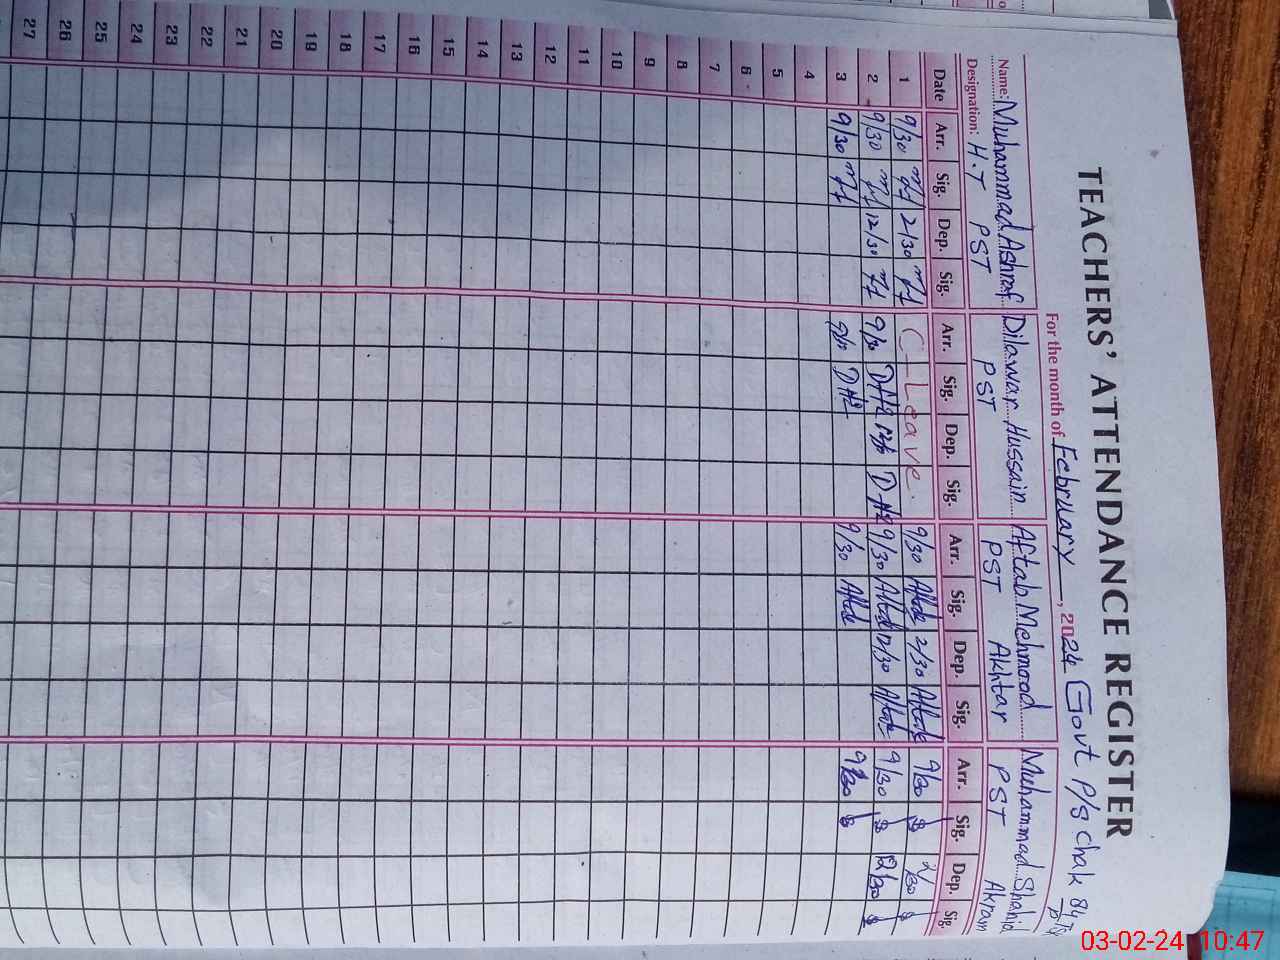 TEACHERS' ATTENDANCE REGISTER
For the month of February, 2024 Govt P/S Chak 84
Name: Muhammad Ashraf Dilawar Hussain Aftab Mehmood Muhammad Shahid
Designation: H.T PST PST PST Akhtar PST Akram
Date Arr. Sig. Dep. Sig. Arr. Sig. Dep. Sig. Arr. Sig. Dep. Sig. Arr. Sig. Dep. Sig.
1 9/30 2/30 C_Leave. 9/30 2/30 9/30 2/30
2 9/30 12/30 9/30 9/30 12/30 9/30 12/30
3 9/30 9/30 9/30
4
5
6
7
8
9
10
11
12
13
14
15
16
17
18
19
20
21
22
23
24
25
26
27
03-02-24 10:47